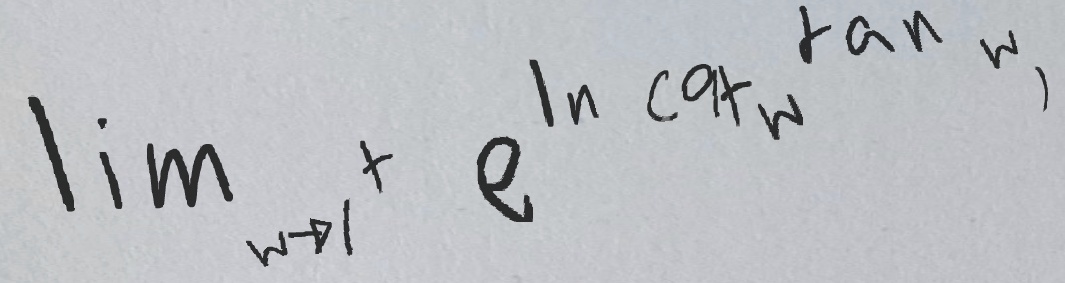 lim w→1⁺ e^ln(cot w^tan w)